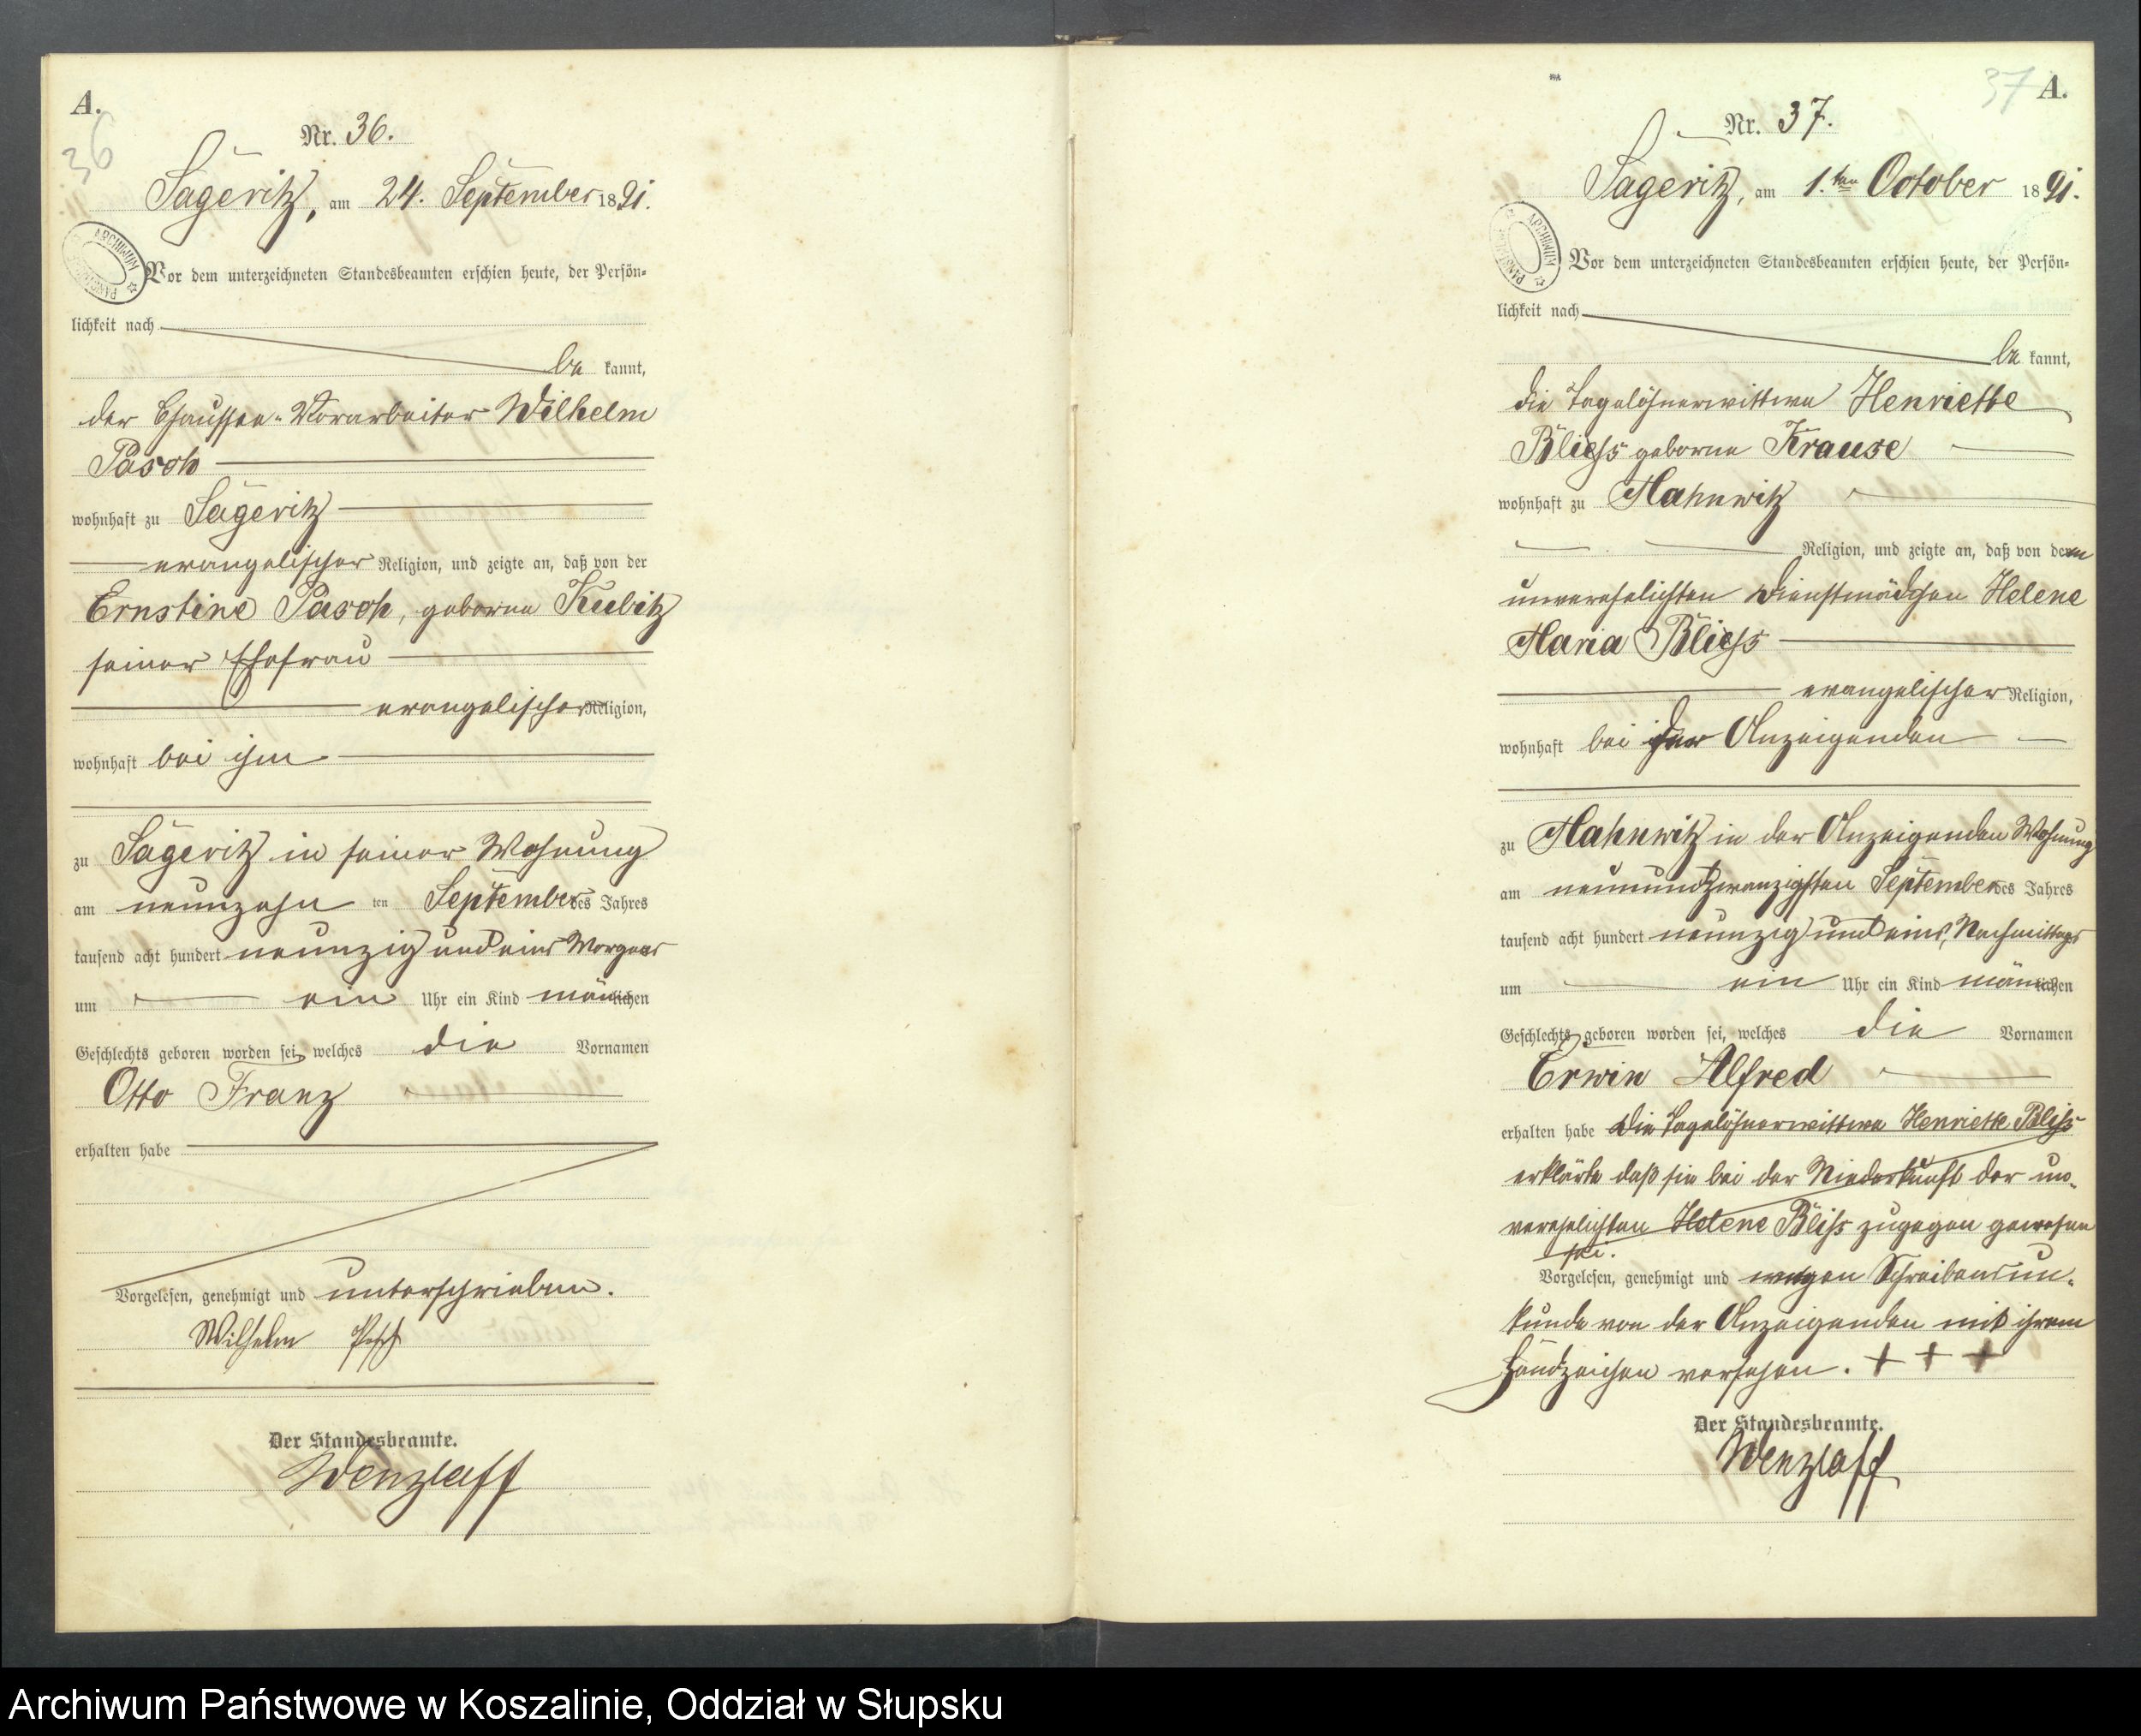 A.
36
Nr. 36.
Sageritz, am 24. September 1891.
ARCHIWUM
Vor dem unterzeichneten Standesbeamten erschien heute, der Persön-
lichkeit nach
be kannt,
der Chaussee-Vorarbeiter Wilhelm
Pasch
wohnhaft zu Sageritz
evangelischer Religion, und zeigte an, daß von der
Ernstine Pasch, geborne Kubitz
seiner Ehefrau
evangelischer Religion,
wohnhaft bei ihm
zu Sageritz in seiner Wohnung
am neunzehn ten September des Jahres
tausend acht hundert neunzig und eins Morgens
um ein Uhr ein Kind männlichen
Geschlechts geboren worden sei, welches die Vornamen
Otto Franz
erhalten habe
Vorgelesen, genehmigt und unterschrieben.
Wilhelm Pasch
Der Standesbeamte.
Wenzlaff
37 A.
Nr. 37.
Sageritz, am 1.ten October 1891.
ARCHIWUM
Vor dem unterzeichneten Standesbeamten erschien heute, der Persön-
lichkeit nach
be kannt,
die Tagelöhnerwittwe Henriette
Bliess geborne Krause
wohnhaft zu Mahnwitz
Religion, und zeigte an, daß von dem
unverehelichten Dienstmädchen Helene
Maria Bliess
evangelischer Religion,
wohnhaft bei der Anzeigenden
zu Mahnwitz in der Anzeigenden Wohnung
am neunundzwanzigsten September des Jahres
tausend acht hundert neunzig und eins, Nachmittags
um ein Uhr ein Kind männlichen
Geschlechts geboren worden sei, welches die Vornamen
Erwin Alfred
erhalten habe Die Tagelöhnerwittwe Henriette Bliss
erklärte daß sie bei der Niederkunft der un-
verehelichten Helene Bliss zugegen gewesen
sei.
Vorgelesen, genehmigt und wegen Schreibensun-
kunde von der Anzeigenden mit ihrem
Handzeichen versehen. + + +
Der Standesbeamte.
Wenzlaff
Archiwum Państwowe w Koszalinie, Oddział w Słupsku